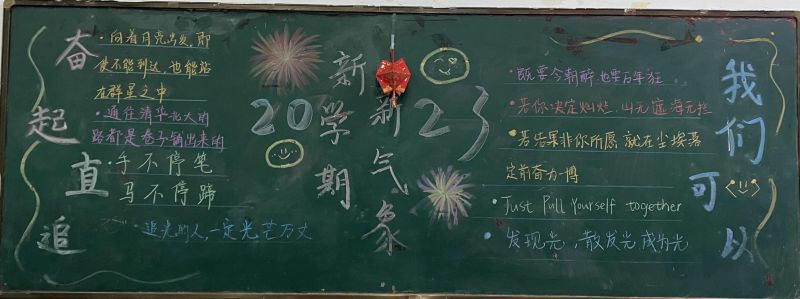 奋起直追
·向着月亮出发,即
使不能到达,也能站
在群星之中
·通往清华北大的
路都是卷子铺出来的
·手不停笔
马不停蹄
·追光的人,一定光芒万丈
新学期
新气象
2023
·既要今朝醉,也要万年狂
·若你决定灿烂,山无遮海无拦
·若结果非你所愿 就在尘埃落
定前奋力一搏
·Just Pull Yourself together
·发现光,散发光 成为光
我们可以